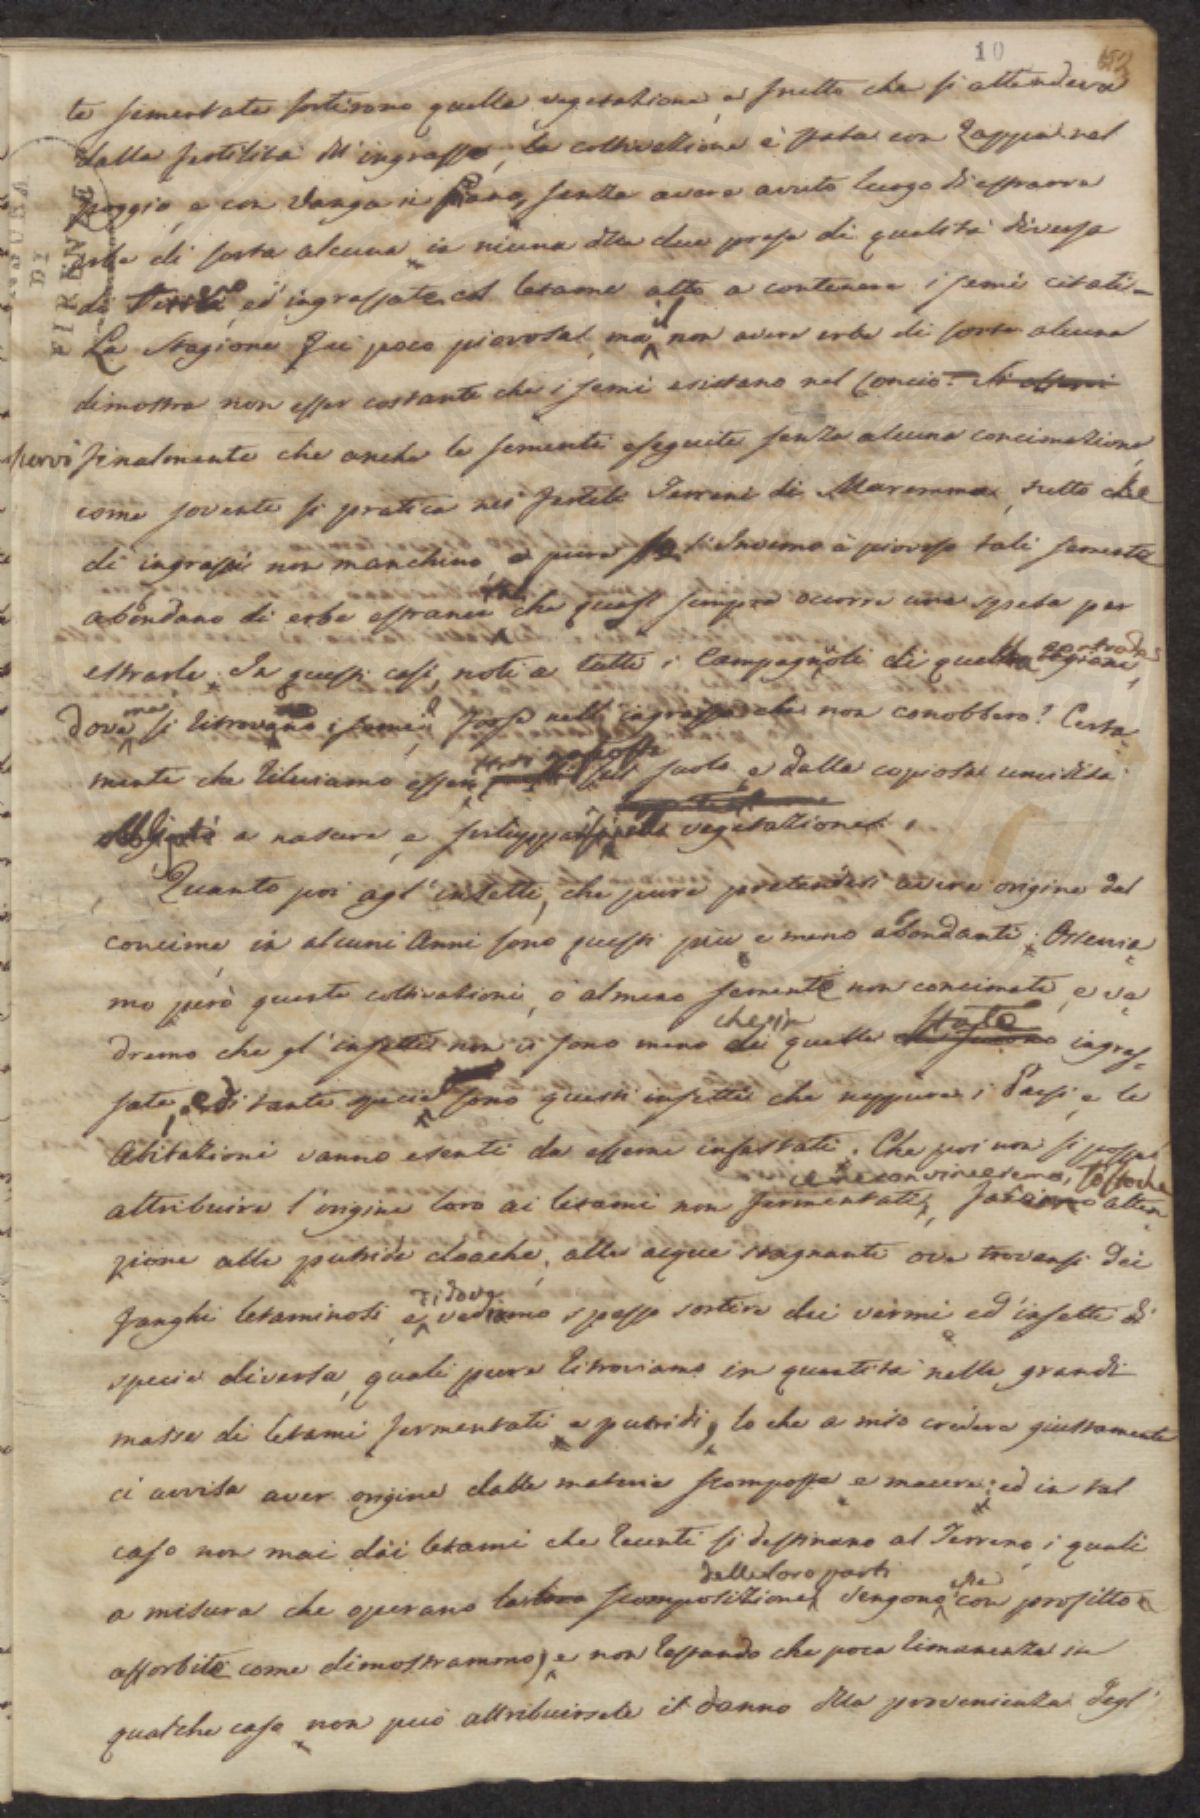 10
te sementate sortirono quella vegetazione, e frutto che si attendeva
dalla fertilità dl' ingrasso, la coltivazione è stata con Zappa nel
poggio, e con Vanga in piano, senza avere avuto luogo di estrarre
erbe di sorta alcuna in niuna dlle due prese di qualità diversa
di Terreno, ed' ingrassate col letame atto a contenere i semi citati-
La stagione fu poco piovosa, ma il non avere erbe di sorta alcuna
dimostra non esser costante che i semi esistano nel Concio.
Finalmente che anche le sementi eseguite senza alcuna concimazione,
come sovente si pratica nei fertili Terreni di Maremma, tutto che
di ingrassi non manchino, e pure se l'Inverno è piovoso tali semente
abondano di erbe estranee tal che quasi sempre occorre una spesa per
estrarle. In questi casi, noti a tutti i Campagnoli di quelle contrade,
dove mai si ritrovano i semi? forse nell' ingrasso che non conobbero? Certa-
mente che rileviamo esser suolo, e dalla copiosa umidità
obbligati a nascere, e sviluppare vegetazione.
Quanto poi agl' insetti, che pure pretendesi avere origine dal
concime in alcuni Anni sono questi piu e meno abondanti. Osservia
mo però queste coltivazioni, o almeno sementi non concimate, e ve
dremo che gl' insetti non vi sono meno che in quelle state ingras-
sate, e di tante specie sono questi insetti che neppure i Paesi e le
Abitazioni vanno esenti da esserne infestati. Che poi non si possa
attribuire l' origine loro ai letami non fermentati, ce ne convinceremo, tosto che faremo atten
zione alle putride cloache, alle acque stagnanti ove trovansi dei
fanghi letaminosi, e di dove vediamo spesso sortire dei vermi ed' insetti di
specie diversa, quali pure ritroviamo in quantità nelle grandi
masse di letami fermentati e putridi, lo che a mio credere giustamente
ci avvisa aver origine dalle materie scomposte e macere; ed in tal
caso non mai dai letami che recenti si destinano al Terreno, i quali
a misura che operano la scomposizione delle loro parti vengono esse con profitto
assorbite come dimostrammo, e non restando che poca rimanenza in
qualche caso non può attribuirsele il danno dlla provenienza degl'